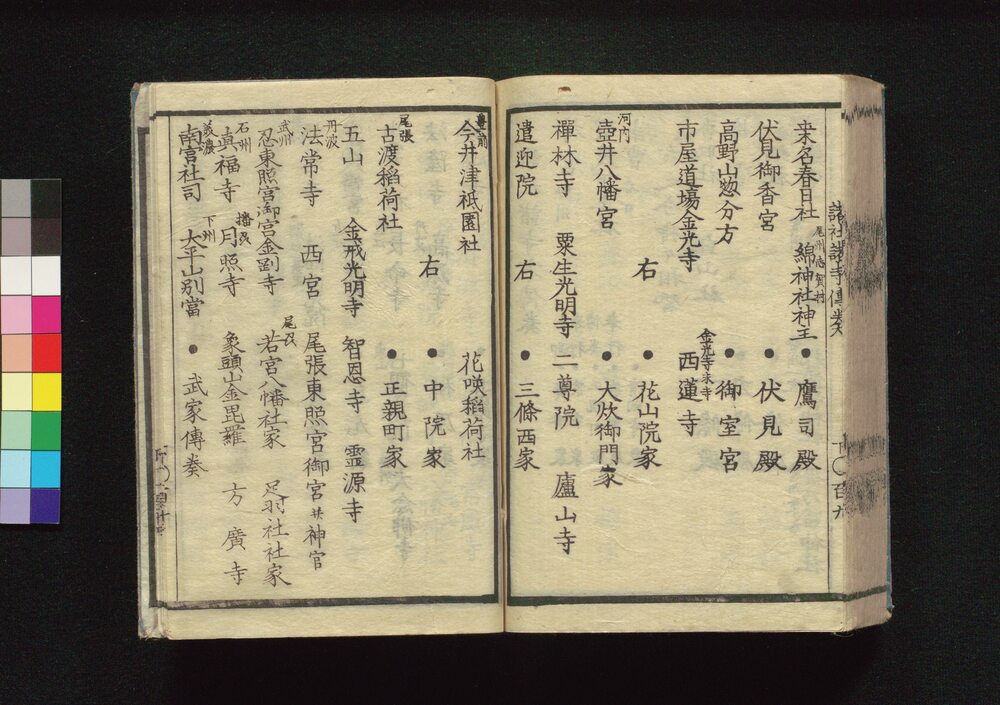 諸社諸寺傳奏
桒名春日社 尾州志賀村 綿神社神主 ● 鷹司殿
伏見御香宮 ● 伏見殿
高野山惣分方 ● 御室宮
市屋道場金光寺 金光寺末寺 西蓮寺
右 ● 花山院家
河内 壺井八幡宮 ● 大炊御門家
禪林寺 粟生光明寺 二尊院 廬山寺
遣迎院 右 ● 三條西家
今井津祗園社 花咲稲荷社
尾張 古渡稲荷社 右 ● 中院家
● 正親町家
五山 金戒光明寺 智恩寺 霊源寺
丹波 法常寺 西宮 尾張東照宮御宮并神官
武州 忍東照宮御宮金剛寺 尾刕 若宮八幡社家 足羽社社家
石州 眞福寺 播刕 月照寺 象頭山金毘羅 方廣寺
美濃 南宮社司 下州 大平山別當 ● 武家傳奏